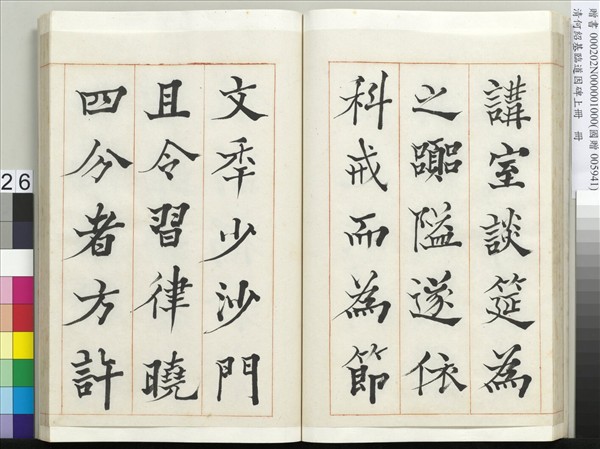 講室談筵為
之躑隘遂依
科戒而為節
文季少沙門
且令習律曉
四分者方許
贈書 000202N000001000(國贈 005941)
清何紹基臨道因碑上冊 冊
26